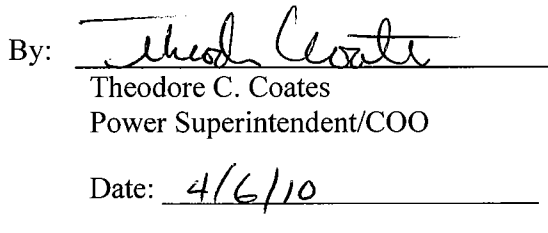 By: Theodore Coates
Theodore C. Coates
Power Superintendent/COO
Date: 4/6/10